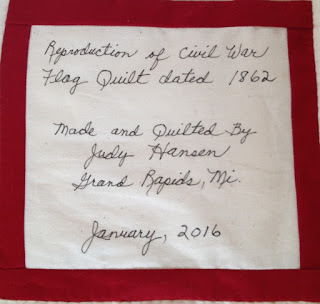 Reproduction of Civil War
Flag Quilt dated 1862
Made and Quilted By
Judy Hansen
Grand Rapids, Mi.
January, 2016